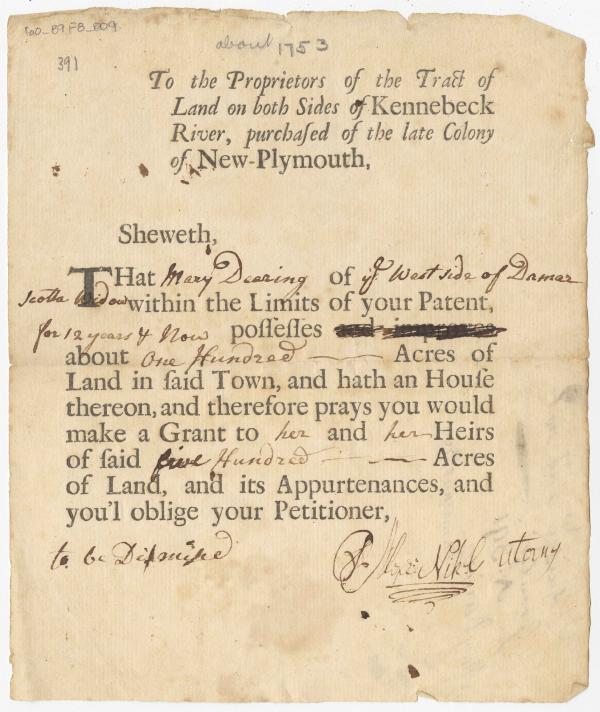 600_89FB_B09
about 1753
391
To the Proprietors of the Tract of
Land on both Sides of Kennebeck
River, purchaſed of the late Colony
of New-Plymouth,
Sheweth,
THat Mary Dearing of yͤ West side of Damar
scotta Widow within the Limits of your Patent,
for 12 years & Now poſſeſſes and improves
about One Hundred Acres of
Land in ſaid Town, and hath an Houſe
thereon, and therefore prays you would
make a Grant to her and her Heirs
of ſaid five Hundred Acres
of Land, and its Appurtenances, and
you'l oblige your Petitioner,
to be Dismised
Atorny